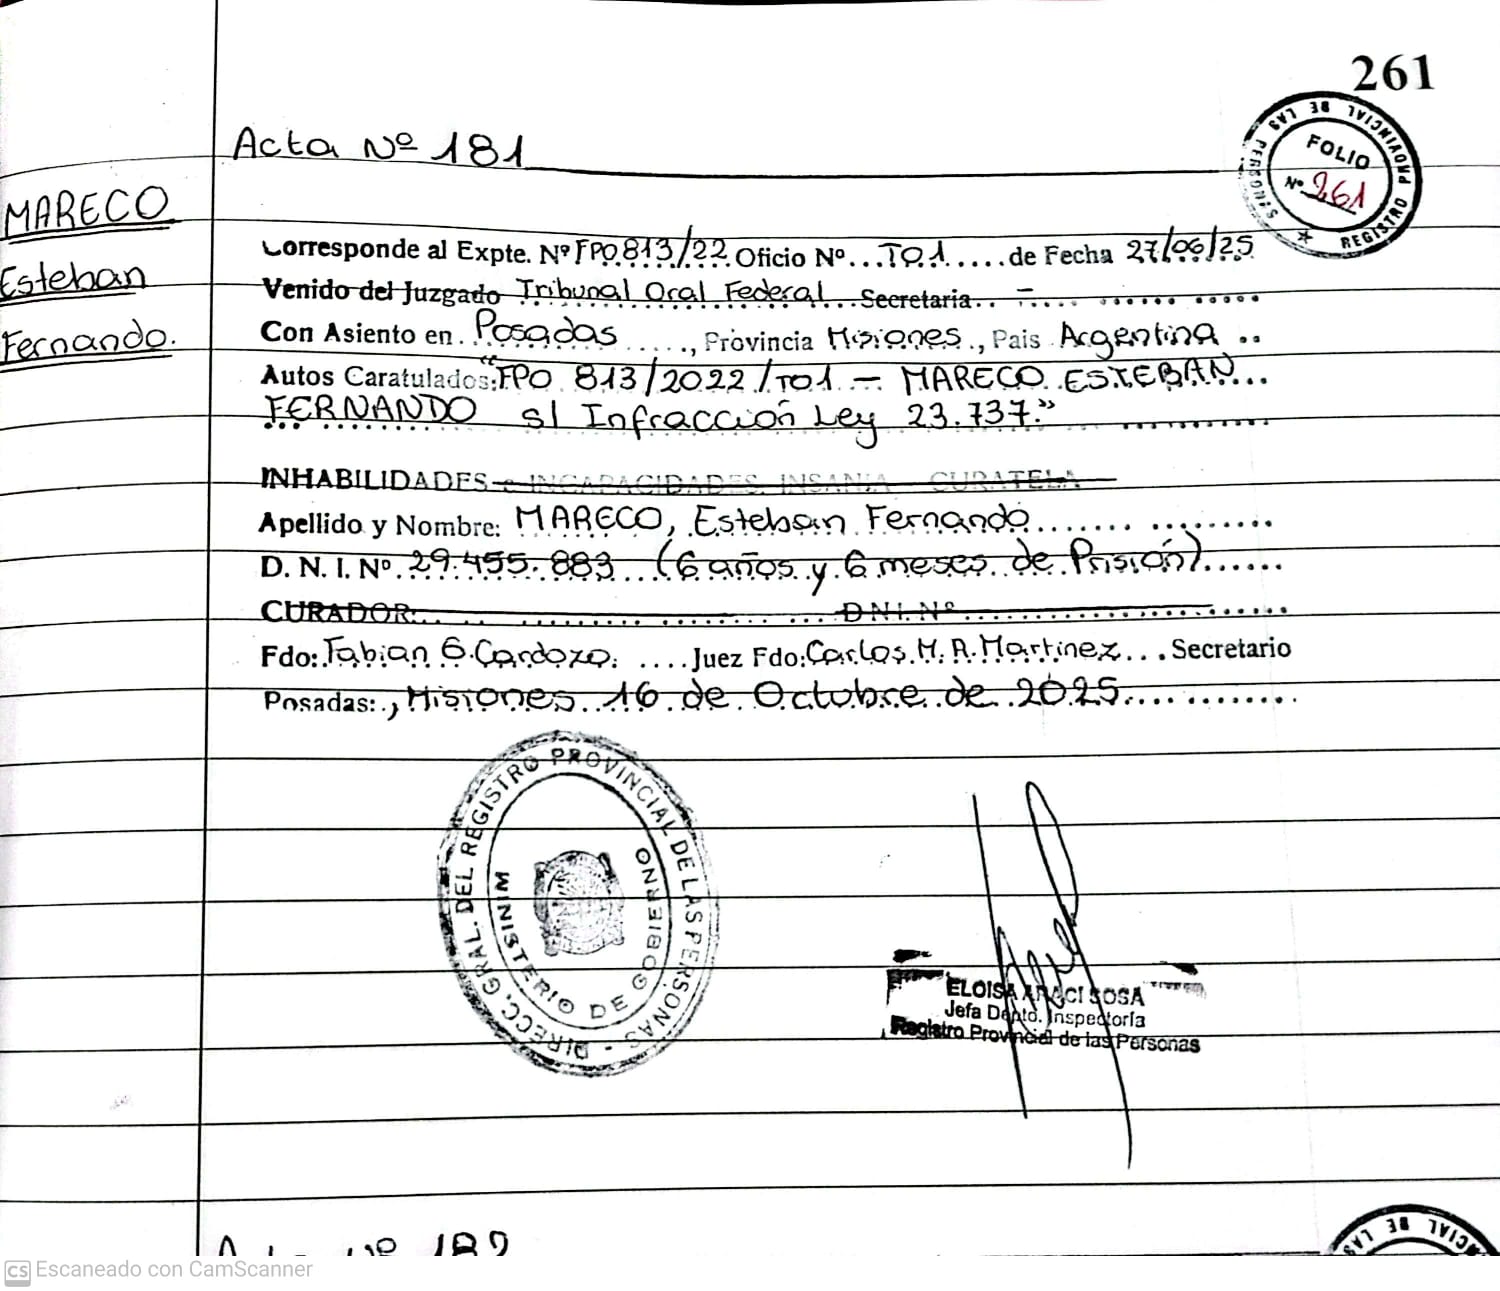 261
PROVINCIAL DE LAS PERSONAS
REGISTRO
FOLIO
Nº 261
Acta Nº 181
MARECO
Esteban
Fernando.
Corresponde al Expte. Nº FPO 813/22 Oficio Nº... TO1 .....de Fecha 27/06/25
Venido del Juzgado Tribunal Oral Federal...Secretaria.. –.... ...... .....
Con Asiento en. Posadas ....., Provincia Misiones., Pais Argentina ..
Autos Caratulados: "FPO 813/2022/TO1 – MARECO ESTEBAN...
FERNANDO s/ Infracción Ley 23.737."
INHABILIDADES e INCAPACIDADES. INSANIA – CURATELA
Apellido y Nombre: MARECO, Esteban Fernando....... .........
D. N. I. Nº. 29.455.883...(6 años y 6 meses de Prisión)......
CURADOR:.. .................. ... D.N.I. Nº ...............
Fdo: Fabian G. Cardozo. ....Juez Fdo: Carlos. M. A. Martinez...Secretario
Posadas:., Misiones 16 de Octubre de 2025.... ........
DIRECC. GRAL. DEL REGISTRO PROVINCIAL DE LAS PERSONAS -
MINISTERIO DE GOBIERNO
ELOISA ARACI SOSA
Jefa Dpto. Inspectoría
Registro Provincial de las Personas
Acta Nº 182
CIAL DE LAS
CS Escaneado con CamScanner